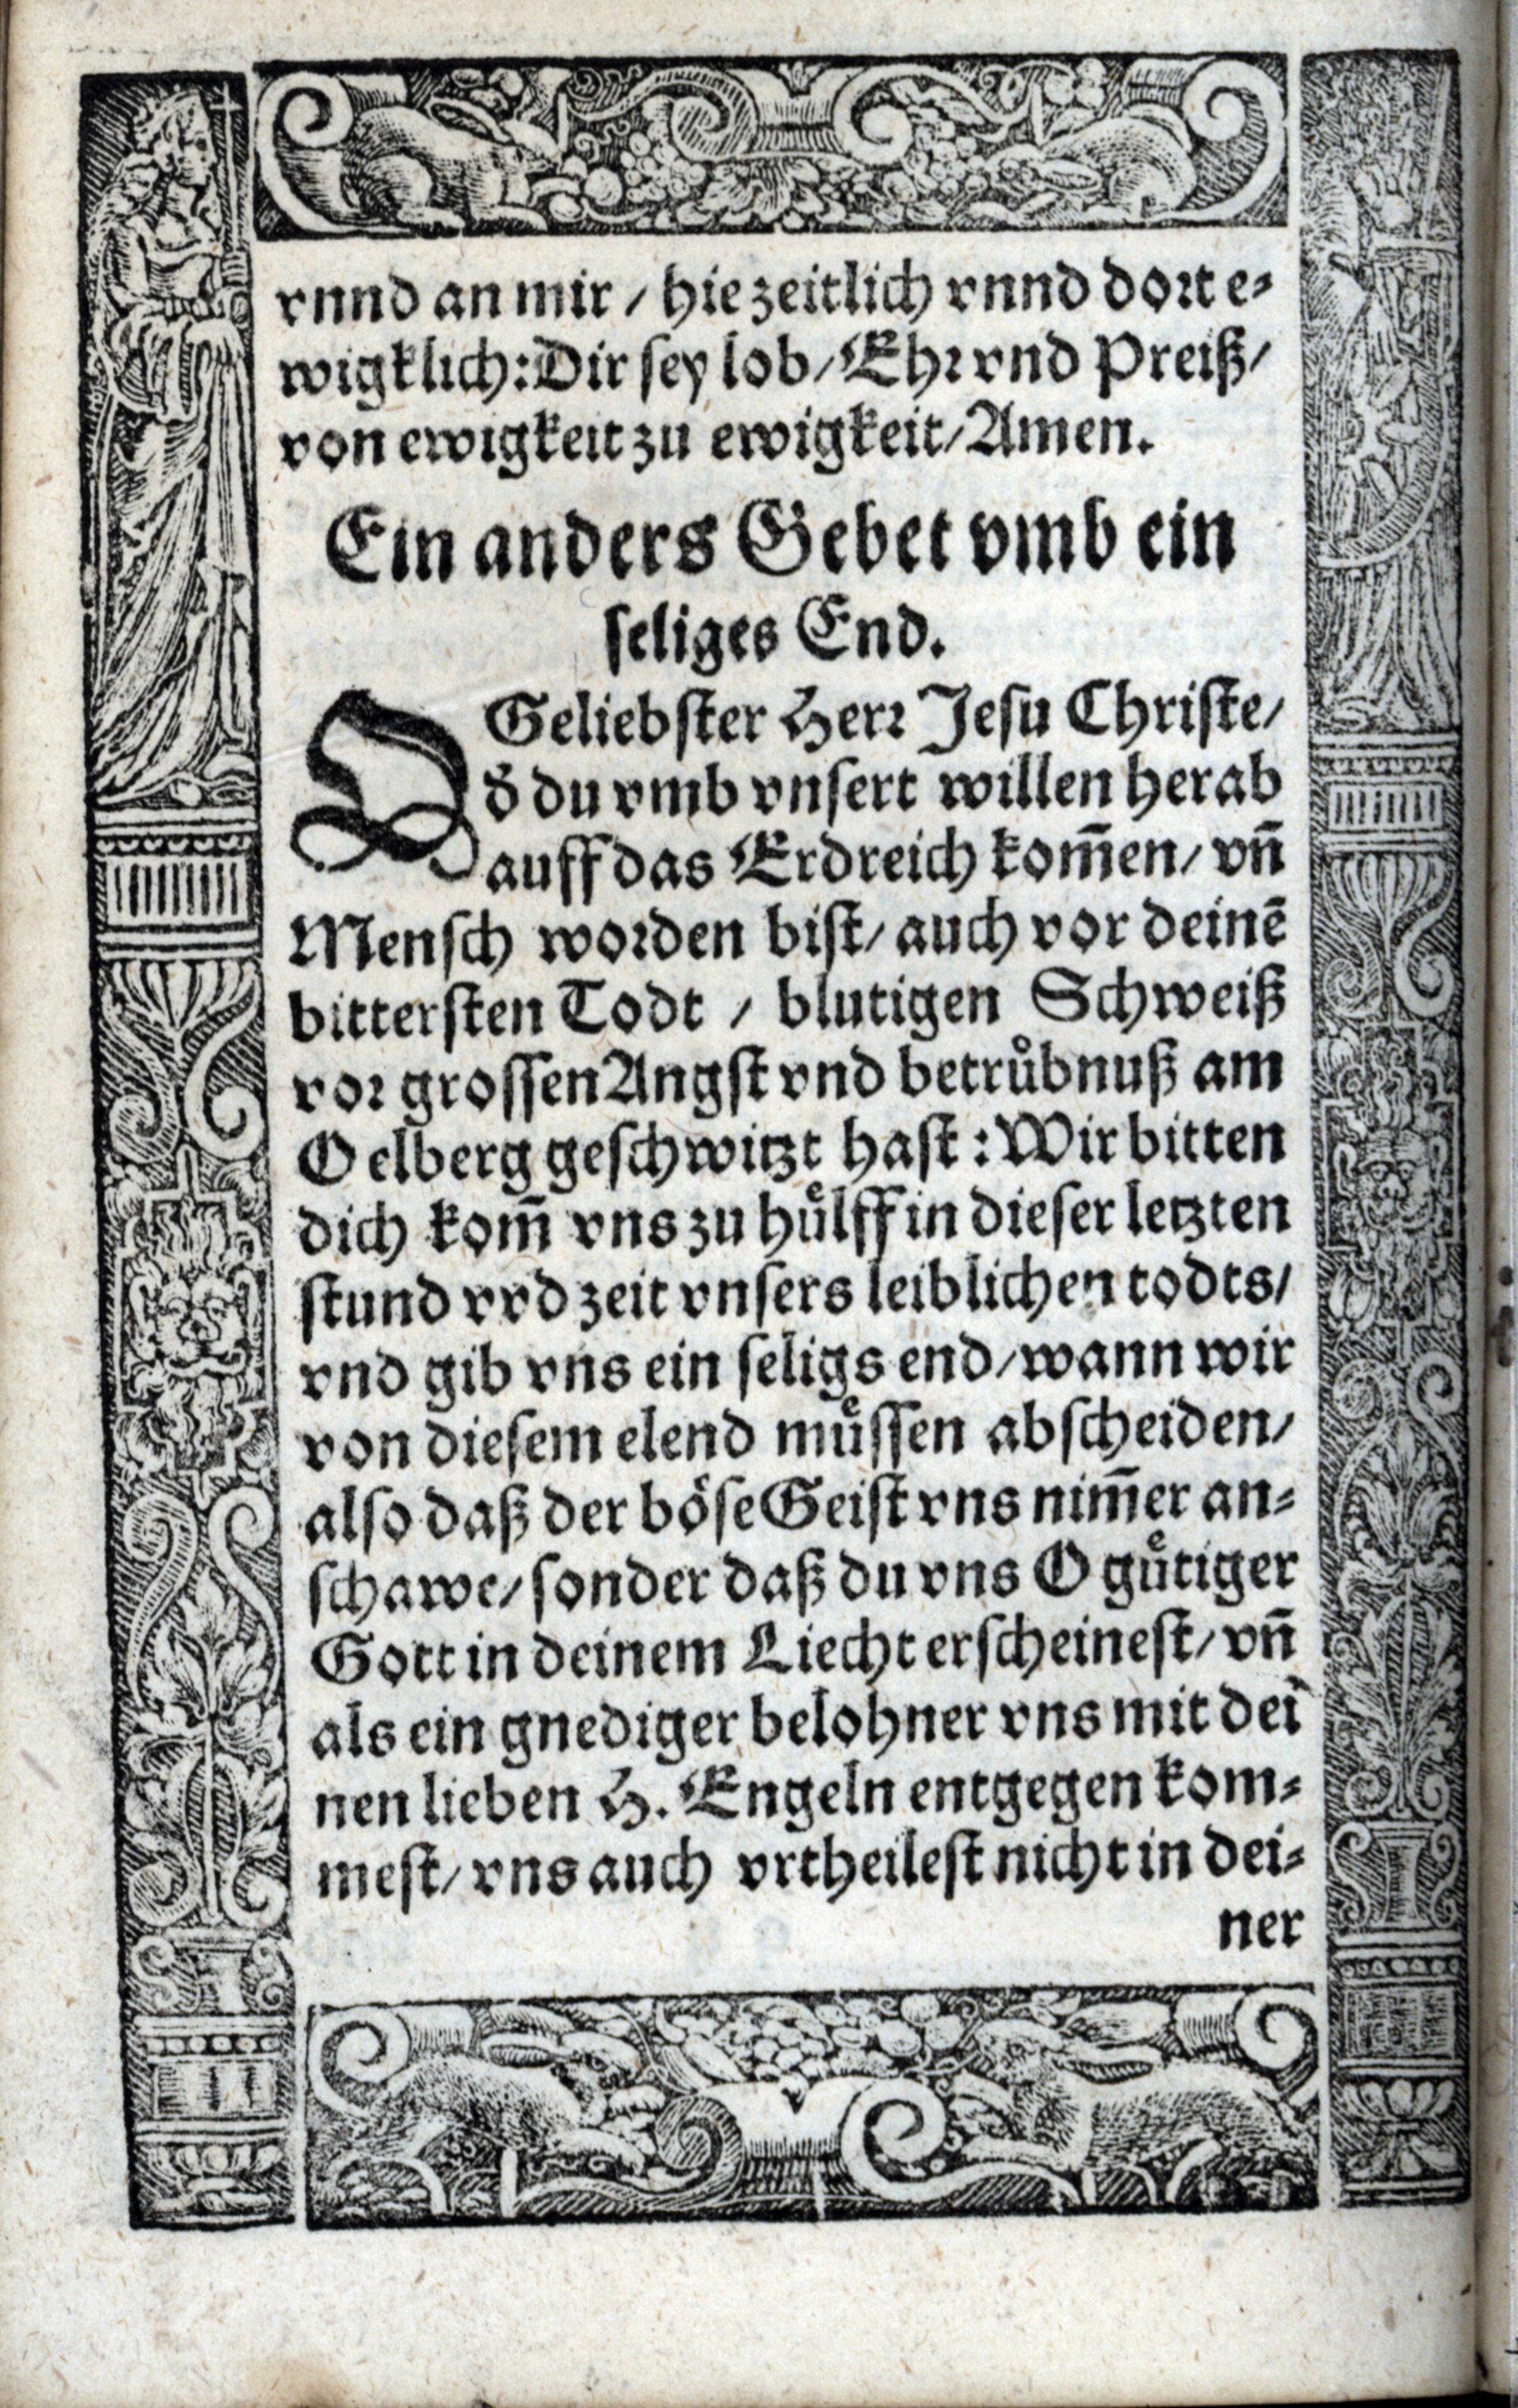 vnnd an mir / hie zeitlich vnnd dort e⸗
wigklich: Dir sey lob / Ehr vnd Preiß /
von ewigkeit zu ewigkeit / Amen.
Ein anders Gebet vmb ein
seliges End.
O Geliebster Herr Jesu Christe /
d̕ du vmb vnsert willen herab
auff das Erdreich kom̄en / vn̄
Mensch worden bist / auch vor deinē
bittersten Todt / blutigen Schweiß
vor grossen Angst vnd betruͤbnuß am
Oelberg geschwitzt hast: Wir bitten
dich kom̄ vns zu huͤlff in dieser letzten
stund vvd zeit vnsers leiblichen todts /
vnd gib vns ein seligs end / wann wir
von diesem elend muͤssen abscheiden /
also daß der boͤse Geist vns nim̄er an⸗
schawe / sonder daß du vns O guͤtiger
Gott in deinem Liecht erscheinest / vn̄
als ein gnediger belohner vns mit dei
nen lieben H. Engeln entgegen kom⸗
mest / vns auch vrtheilest nicht in dei⸗
ner